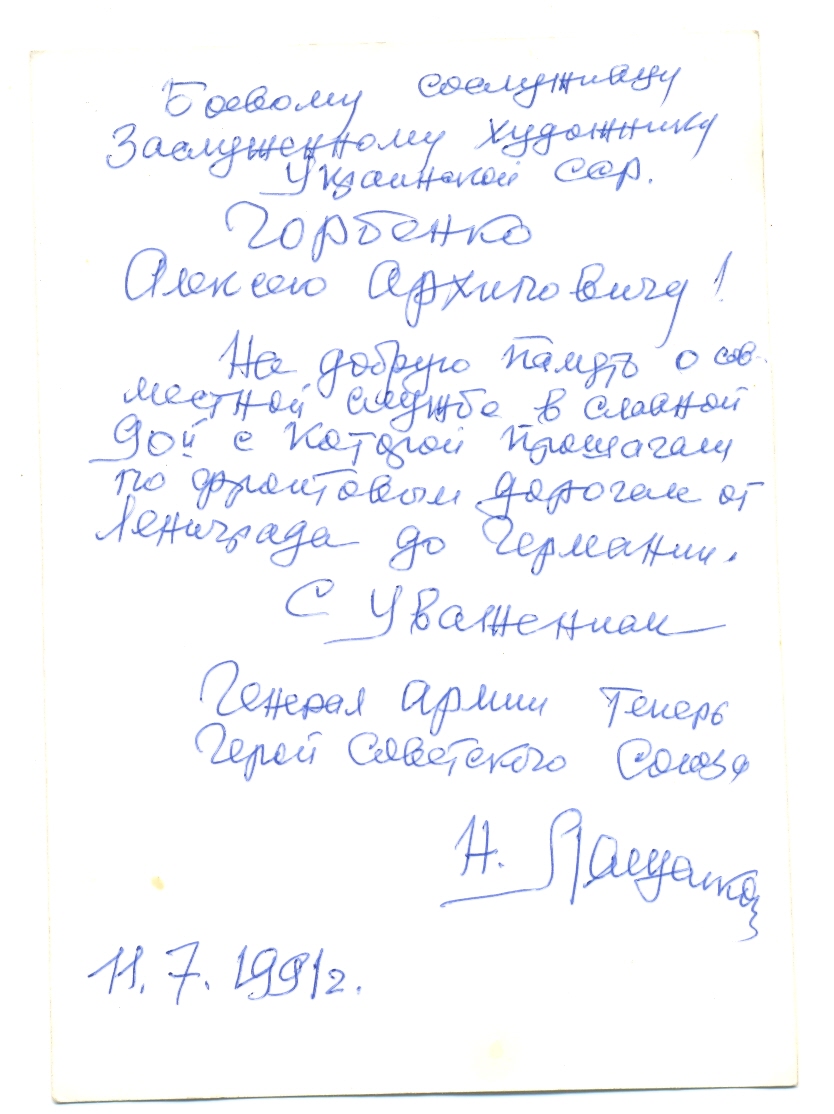 Боевому сослуживцу
Заслуженному художнику
Украинской ССР.
Горбенко
Алексею Архиповичу!
На добрую память о сов-
местной службе в славной
90й с которой прошагали
по фронтовым дорогам от
Ленинграда до Германии.
С Уважением
Генерал армии
Герой Советского Союза
Н. Лященко
11.7.1991г.